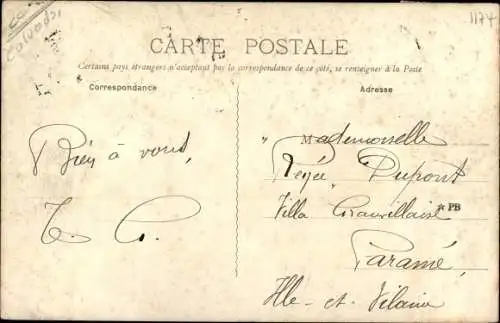 Calvados
1174
CARTE POSTALE
Certains pays étrangers n'acceptent pas la correspondance de ce côté, se renseigner à la Poste
Correspondance
Adresse
Bien à vous,
Mademoiselle
Dupont
Villa Granvillaise
PB
Paramé,
Ille-et-Vilaine